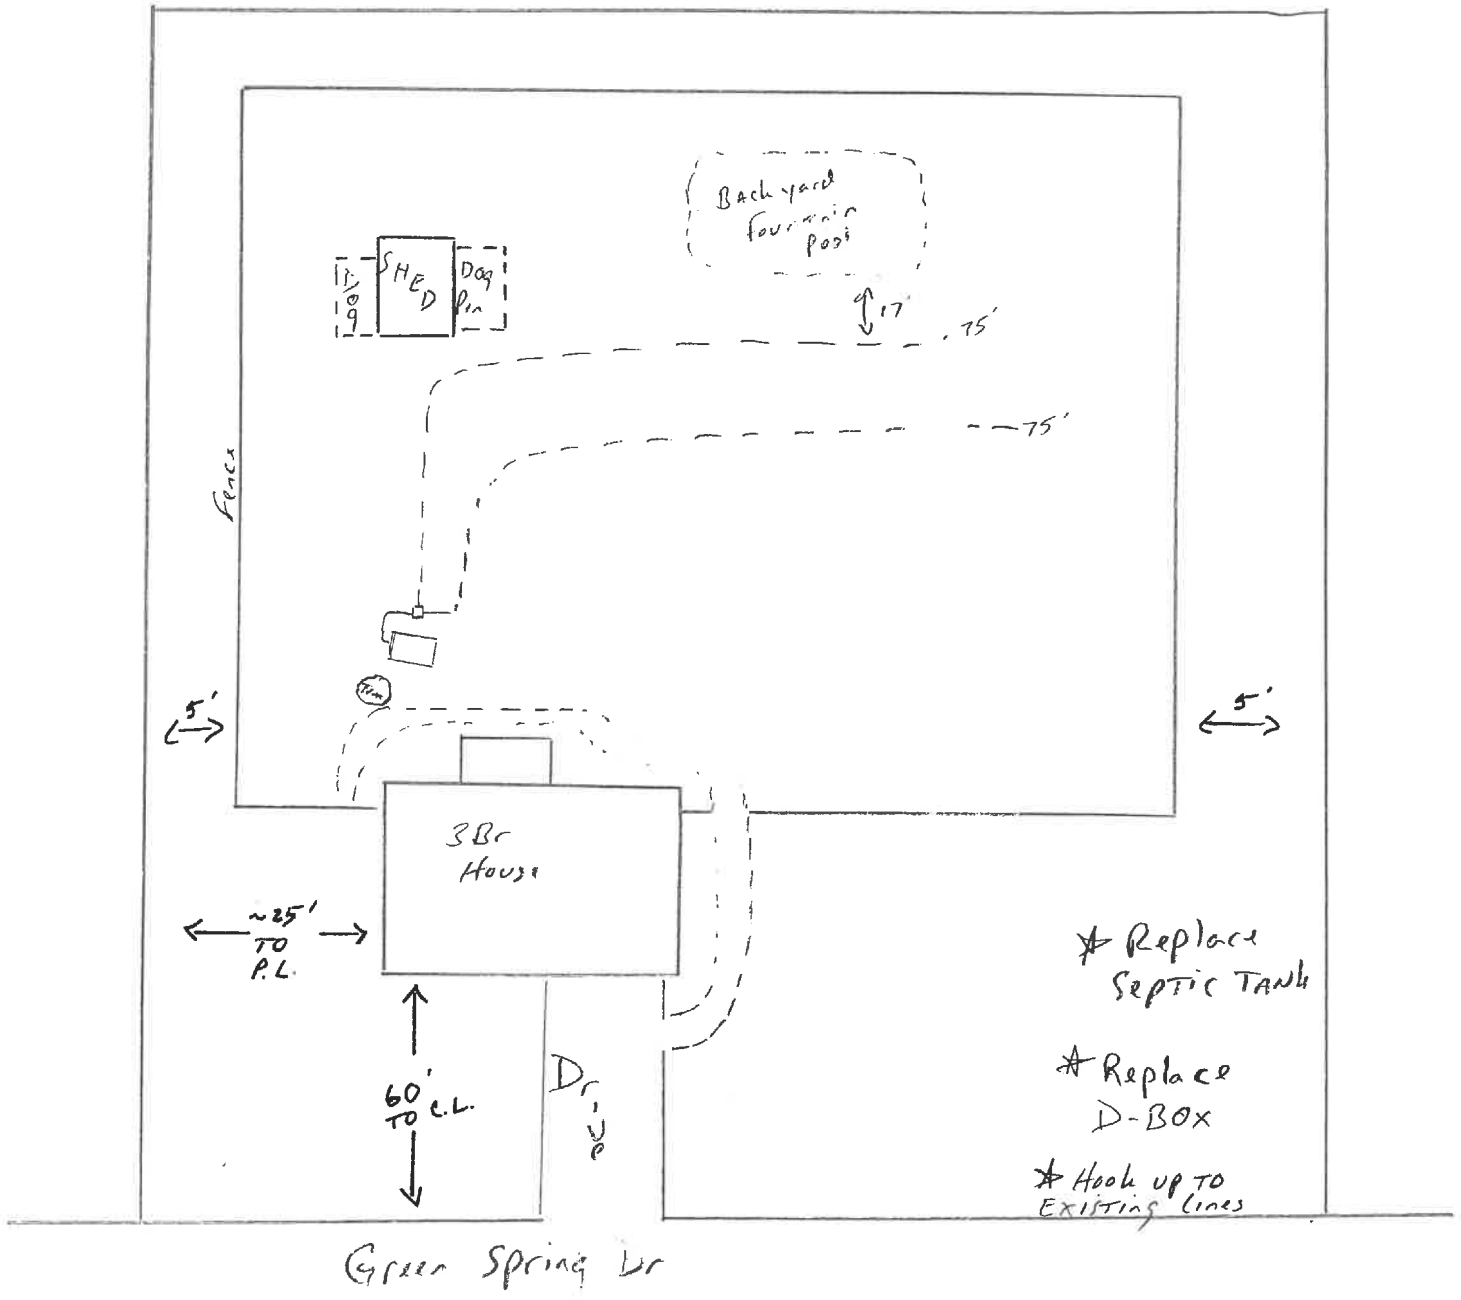 BACk yard
fountain
pool
SHED
Dog
Dog
Pin
17'
75'
75'
Fence
5'
5'
Tree
3Br
House
~25'
TO
P.L.
60'
TO C.L.
Drive
* Replace
SEPTIC TANk
* Replace
D-BOX
* Hook UP TO
EXISTING Lines
Green Spring Dr